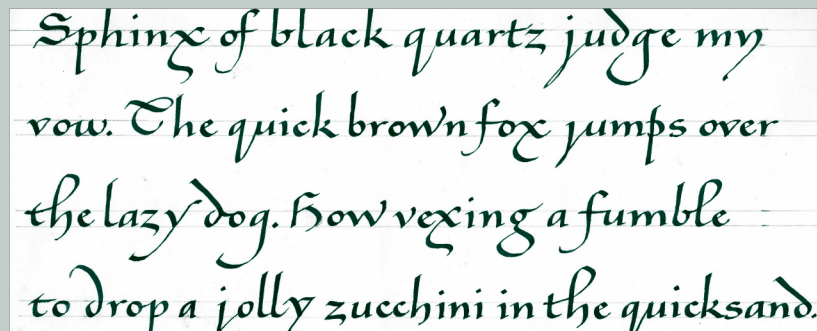 Sphinx of black quartz judge my
vow. The quick brown fox jumps over
the lazy dog. How vexing a fumble
to drop a jolly zucchini in the quicksand.